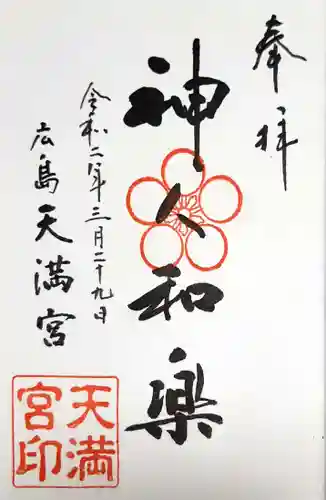 奉拝
神人和樂
令和二年三月二十九日
広島天満宮
天満宮印